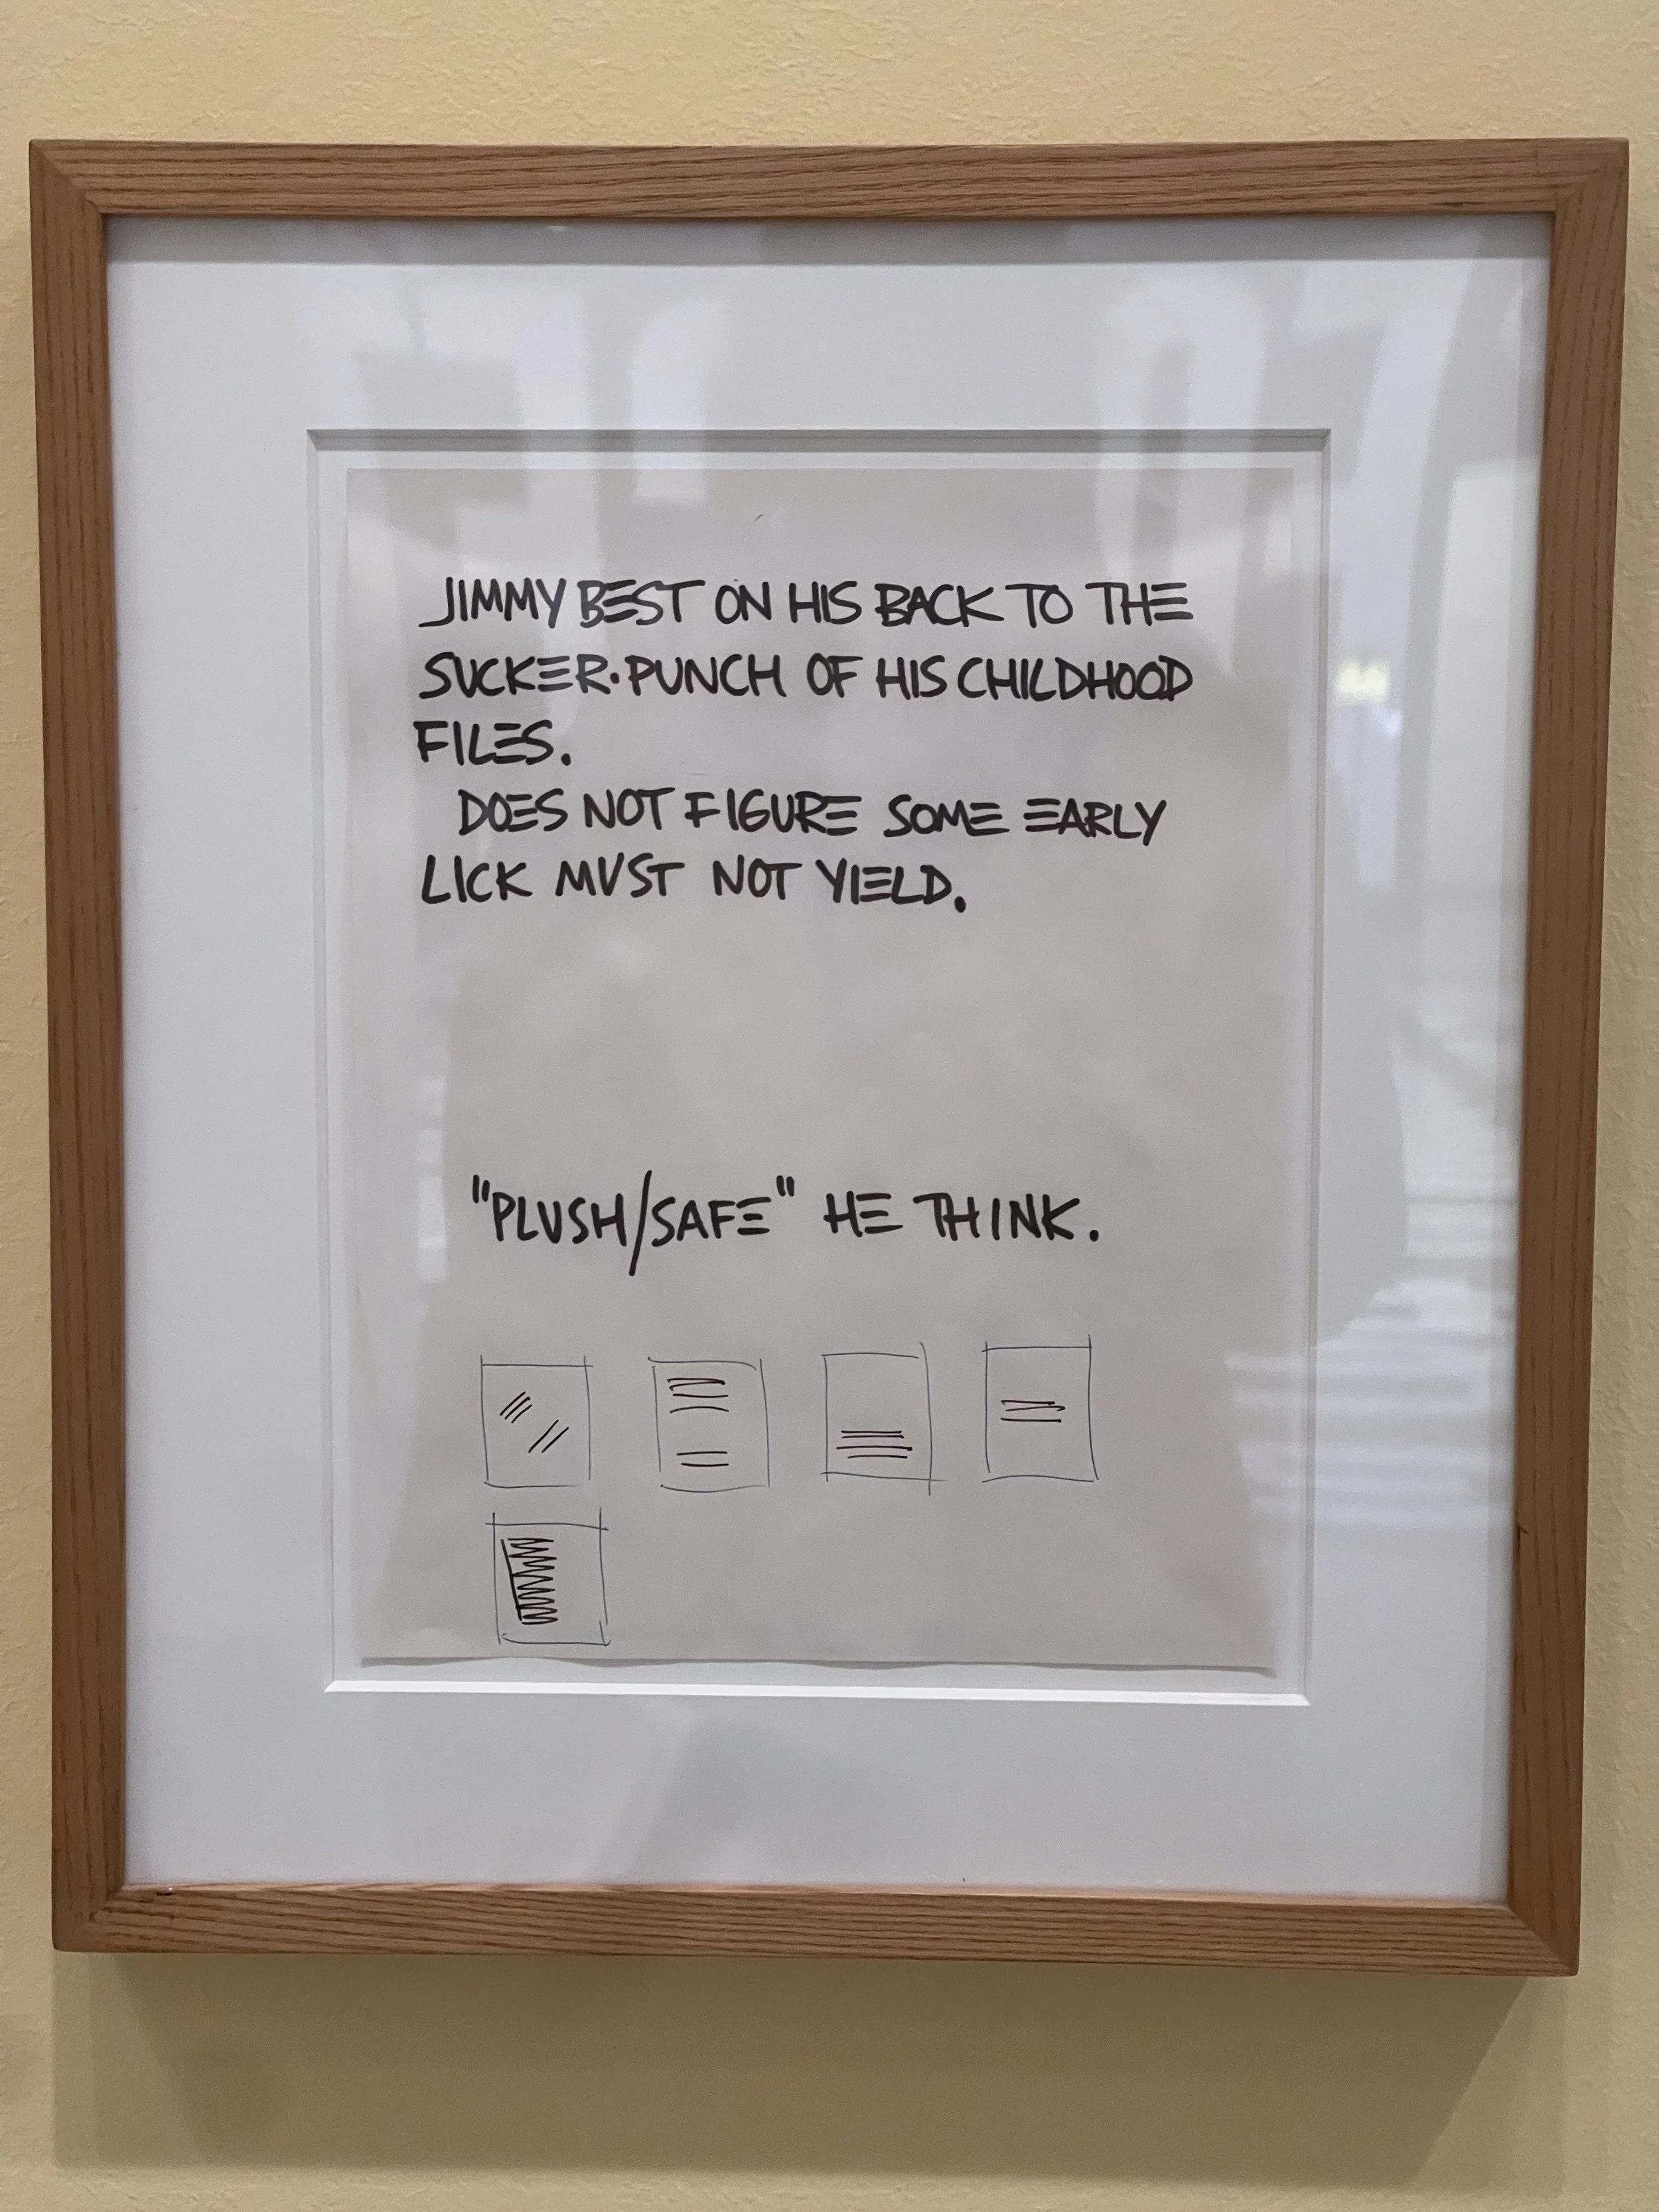 JIMMY BEST ON HIS BACK TO THE
SUCKER·PUNCH OF HIS CHILDHOOD
FILES.
DOES NOT FIGURE SOME EARLY
LICK MUST NOT YIELD.
"PLUSH/SAFE" HE THINK.